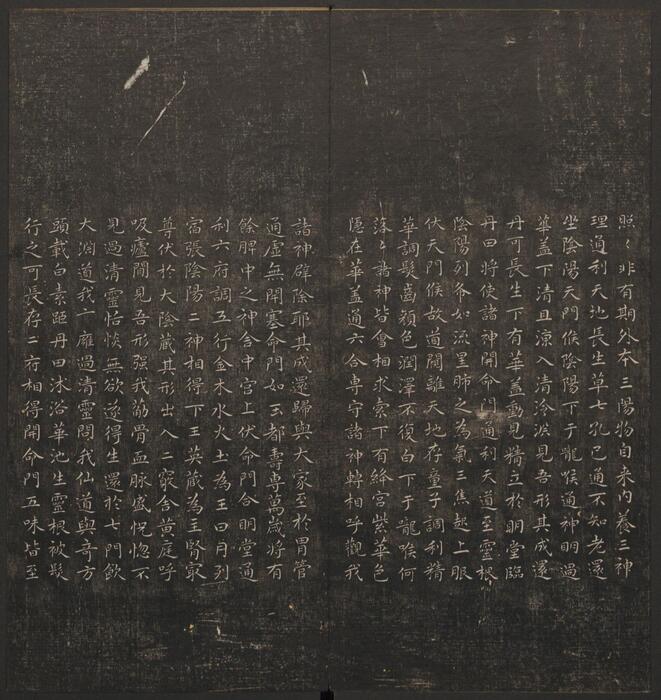 照〻非有期外本三陽物自来内養三神
理通利天地長生草七孔已通不知老還
坐陰陽天門候陰陽下于龍喉通神明過
華盖下清且涼入清泠淵見吾形其成還
丹可長生下有華盖動見精立於明堂臨
丹田將使諸神開命門通利天道至靈根
陰陽列布如流星肺之為氣三焦起上服
伏天門候故道闚離天地存童子調利精
華調髮齒顔色潤澤不復白下于龍喉何
落〻諸神皆會相求索下有絳宫紫華色
隱在華盖通六合専守諸神轉相呼觀我
諸神辟除耶其成還歸與大家至於胃管
通虛無閇塞命門如玉都壽専萬歳將有
餘脾中之神舎中宫上伏命門合明堂通
利六府調五行金木水火土為王日月列
宿張陰陽二神相得下玉英五藏為主腎最
尊伏於大陰藏其形出入二竅舎黄庭呼
吸廬間見吾形强我筋骨血脉盛怳惚不
見過清靈恬惔無欲遂得生還於七門飲
大淵道我玄雍過清靈問我仙道與奇方
頭載白素距丹田沐浴華池生靈根被髮
行之可長存二府相得開命門五味皆至